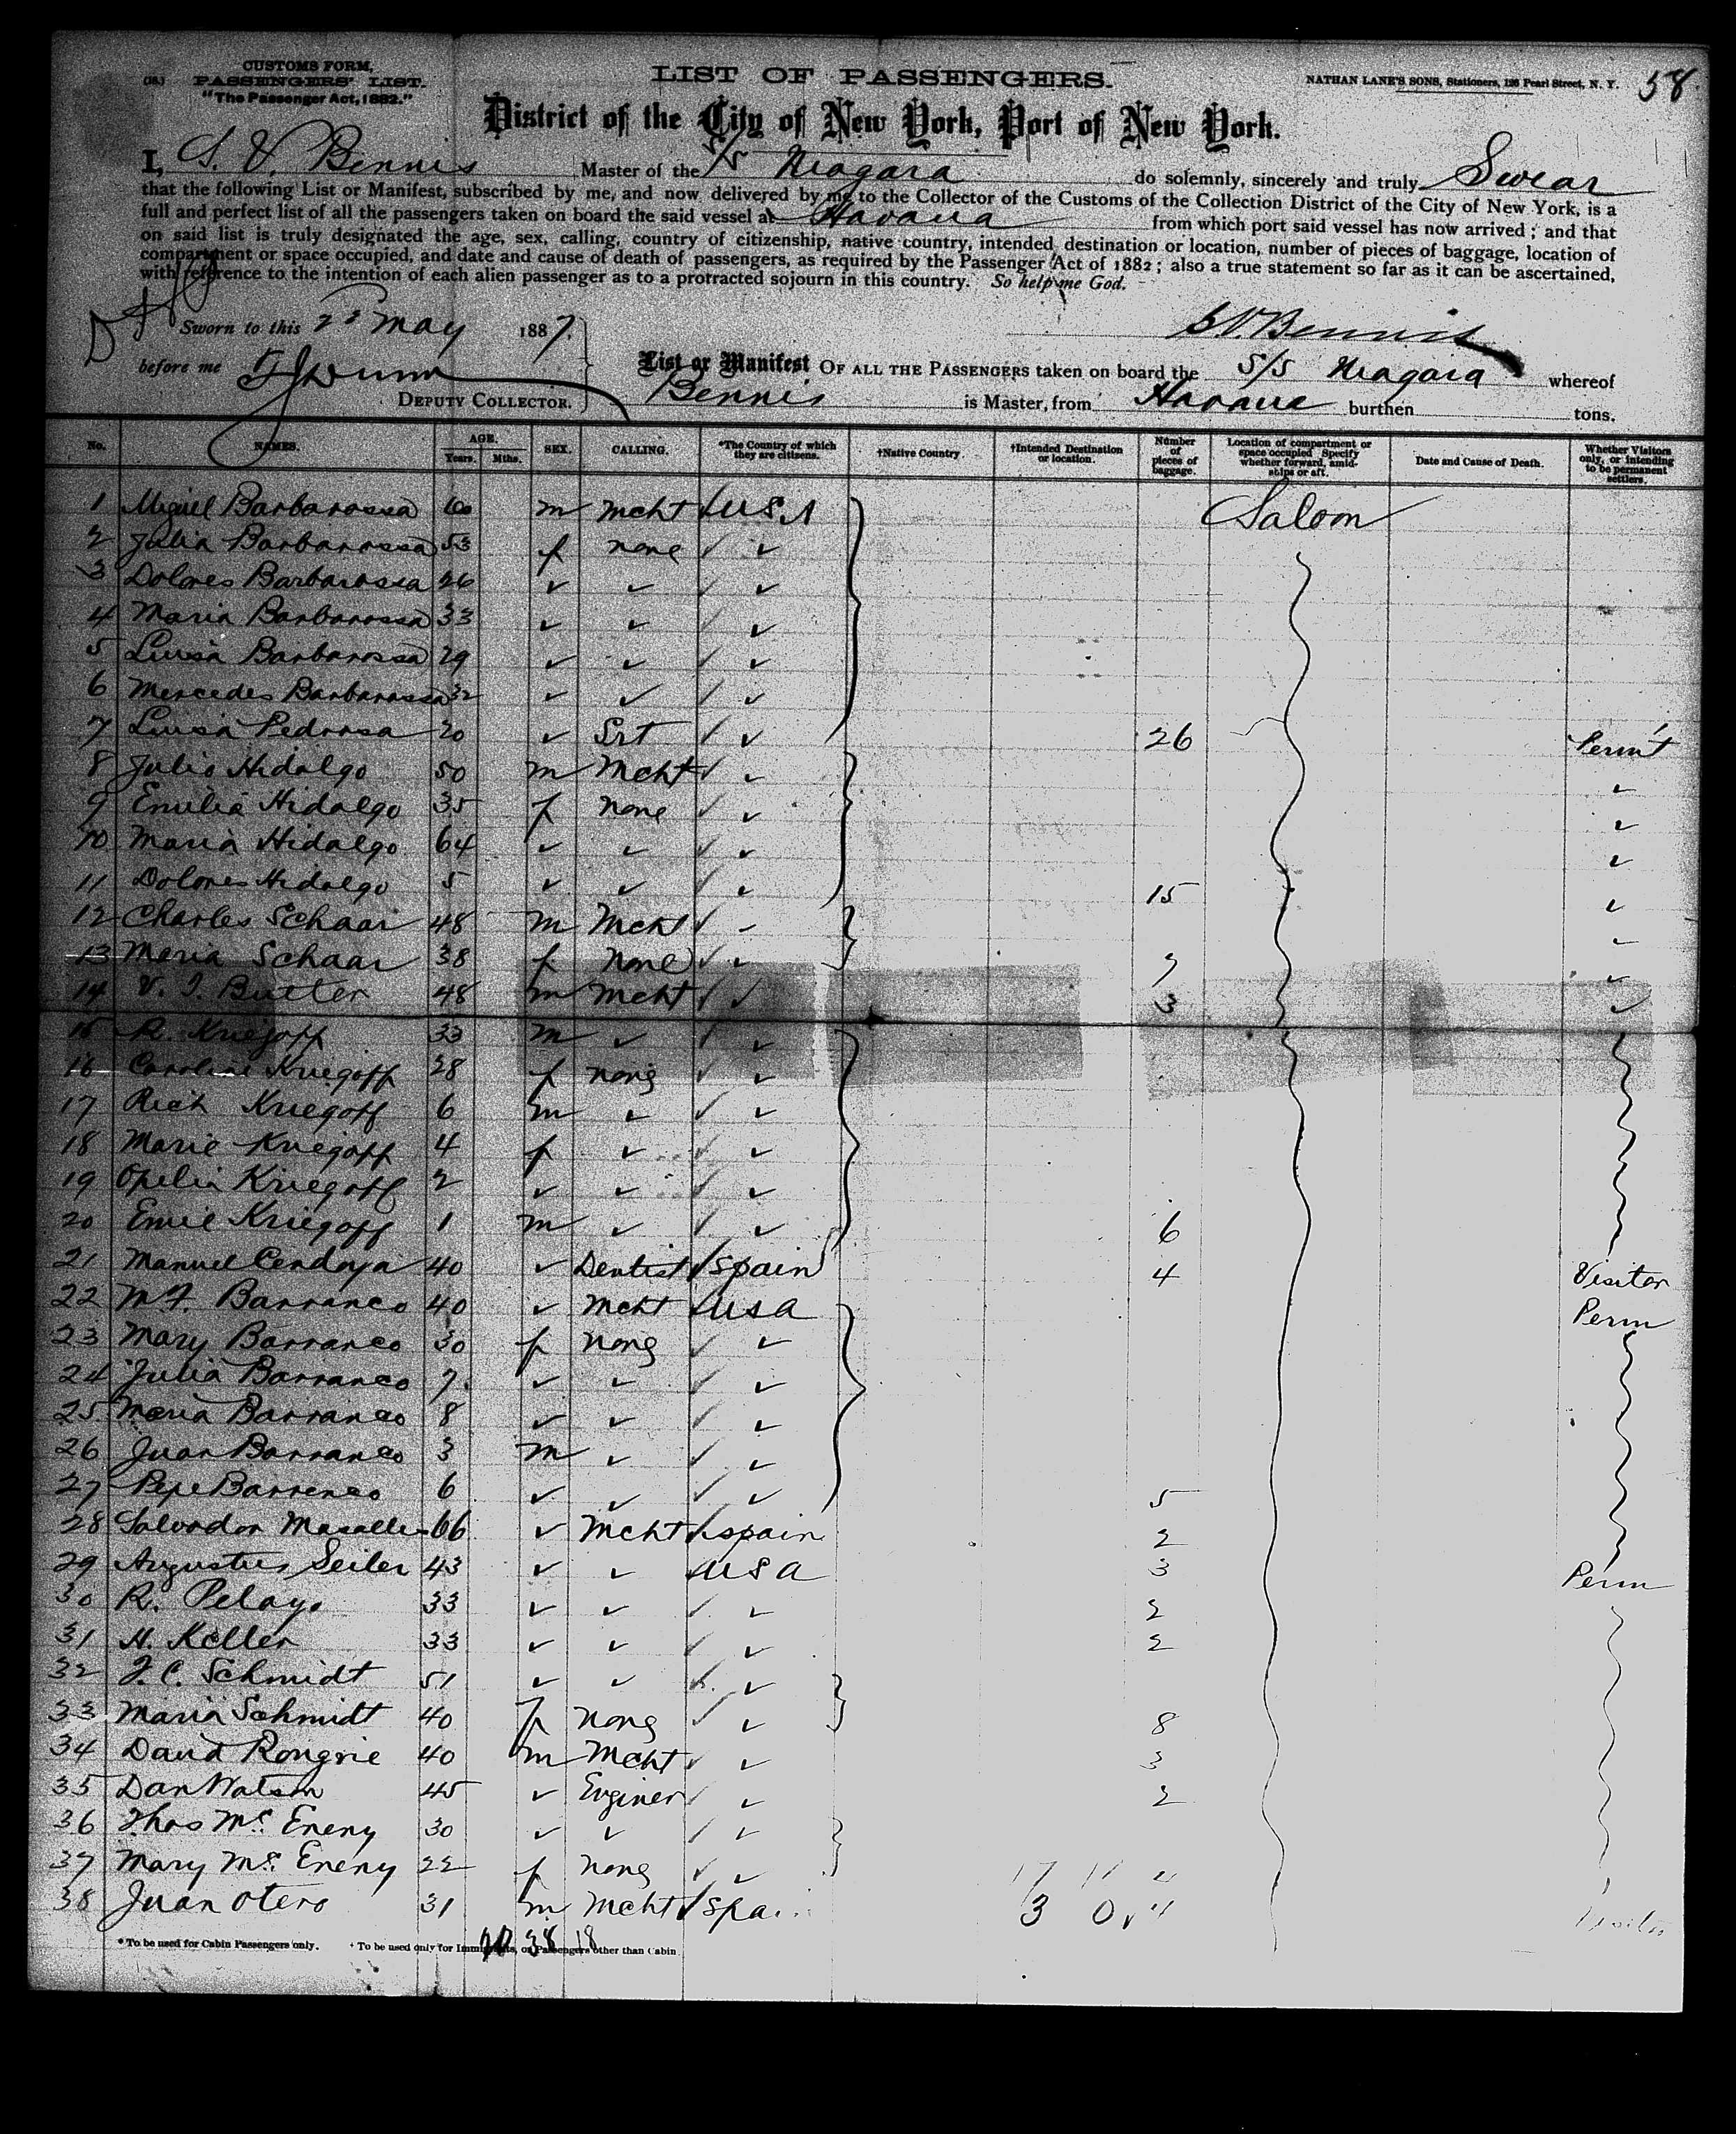 CUSTOMS FORM,
PASSENGERS' LIST.
"The Passenger Act, 1882."
LIST OF PASSENGERS.
NATHAN LANE'S SONS, Stationers, 126 Pearl Street, N. Y.
58
District of the City of New York, Port of New York.
I, S. V. Bennis Master of the S/S Niagara do solemnly, sincerely and truly Swear
that the following List or Manifest, subscribed by me, and now delivered by me to the Collector of the Customs of the Collection District of the City of New York, is a
full and perfect list of all the passengers taken on board the said vessel at Havana from which port said vessel has now arrived; and that
on said list is truly designated the age, sex, calling, country of citizenship, native country, intended destination or location, number of pieces of baggage, location of
compartment or space occupied, and date and cause of death of passengers, as required by the Passenger Act of 1882; also a true statement so far as it can be ascertained,
with reference to the intention of each alien passenger as to a protracted sojourn in this country. So help me God.
Sworn to this May 1887.
S V. Bennis
before me
DEPUTY COLLECTOR.
List or Manifest OF ALL THE PASSENGERS taken on board the S/S Niagara whereof
Bennis is Master, from Havana burthen tons.
No. NAMES. AGE. Years. Mths. SEX. CALLING. *The Country of which they are citizens. †Native Country. †Intended Destination or location. Number of pieces of baggage. Location of compartment or space occupied. Specify whether forward, amidships or aft. Date and Cause of Death. Whether Visitors only, or intending to be permanent settlers.
1 Miguel Barbarossa 60 m Mcht ✓ USA Saloon
2 Julia Barbarossa 53 f none ✓ ✓
3 Dolores Barbarossa 26 ✓ ✓ ✓ ✓
4 Maria Barbarossa 33 ✓ ✓ ✓
5 Luisa Barbarossa 29 ✓ ✓ ✓ ✓
6 Mercedes Barbarossa 32 ✓ ✓ ✓ ✓
7 Luisa Pedrosa 20 ✓ Srt ✓ ✓ 26 Perm't
8 Julio Hidalgo 50 m Mcht ✓ ✓ ✓
9 Emilia Hidalgo 35 f none ✓ ✓ ✓
10 Maria Hidalgo 64 ✓ ✓ ✓ ✓ ✓
11 Dolores Hidalgo 5 ✓ ✓ ✓ ✓ 15 ✓
12 Charles Schaar 48 m Mcht ✓ ✓ ✓
13 Maria Schaar 38 f none ✓ ✓ 7 ✓
14 V. I. Butler 48 m Mcht ✓ ✓ 3 ✓
15 R. Kriegoff 33 m ✓ ✓ ✓
16 Caroline Kriegoff 28 f none ✓ ✓
17 Rich Kriegoff 6 m ✓ ✓ ✓
18 Marie Kriegoff 4 f ✓ ✓ ✓
19 Ofelia Kriegoff 2 ✓ ✓ ✓ ✓
20 Emil Kriegoff 1 m ✓ ✓ ✓ 6
21 Manuel Cendoya 40 ✓ Dentist ✓ Spain 4 Visitor
22 M F. Barranco 40 ✓ Mcht ✓ USA Perm
23 Mary Barranco 30 f none ✓ ✓
24 Julia Barranco 7 ✓ ✓ ✓ ✓
25 Maria Barranco 8 ✓ ✓ ✓ ✓
26 Juan Barranco 3 m ✓ ✓ ✓
27 Pepe Barranco 6 ✓ ✓ ✓ ✓ 5
28 Salvador 66 ✓ Mcht ✓ Spain 2
29 Augustus Seiler 43 ✓ ✓ USA 3 Perm
30 R. Pelayo 33 ✓ ✓ ✓ ✓ 2
31 H. Keller 33 ✓ ✓ ✓ ✓ 2
32 F. C. Schmidt 51 ✓ ✓ ✓ ✓
33 Maria Schmidt 40 f none ✓ ✓ 8
34 David Rongrie 40 m Mcht ✓ ✓ 3
35 Dan Watson 45 ✓ Enginer ✓ ✓ 2
36 Thos Mc Eneny 30 ✓ ✓ ✓ ✓
37 Mary Mc Eneny 22 f none ✓ ✓
38 Juan Otero 31 m Mcht ✓ Spai 3
* To be used for Cabin Passengers only. † To be used only for Immigrants, or Passengers other than Cabin
38 18